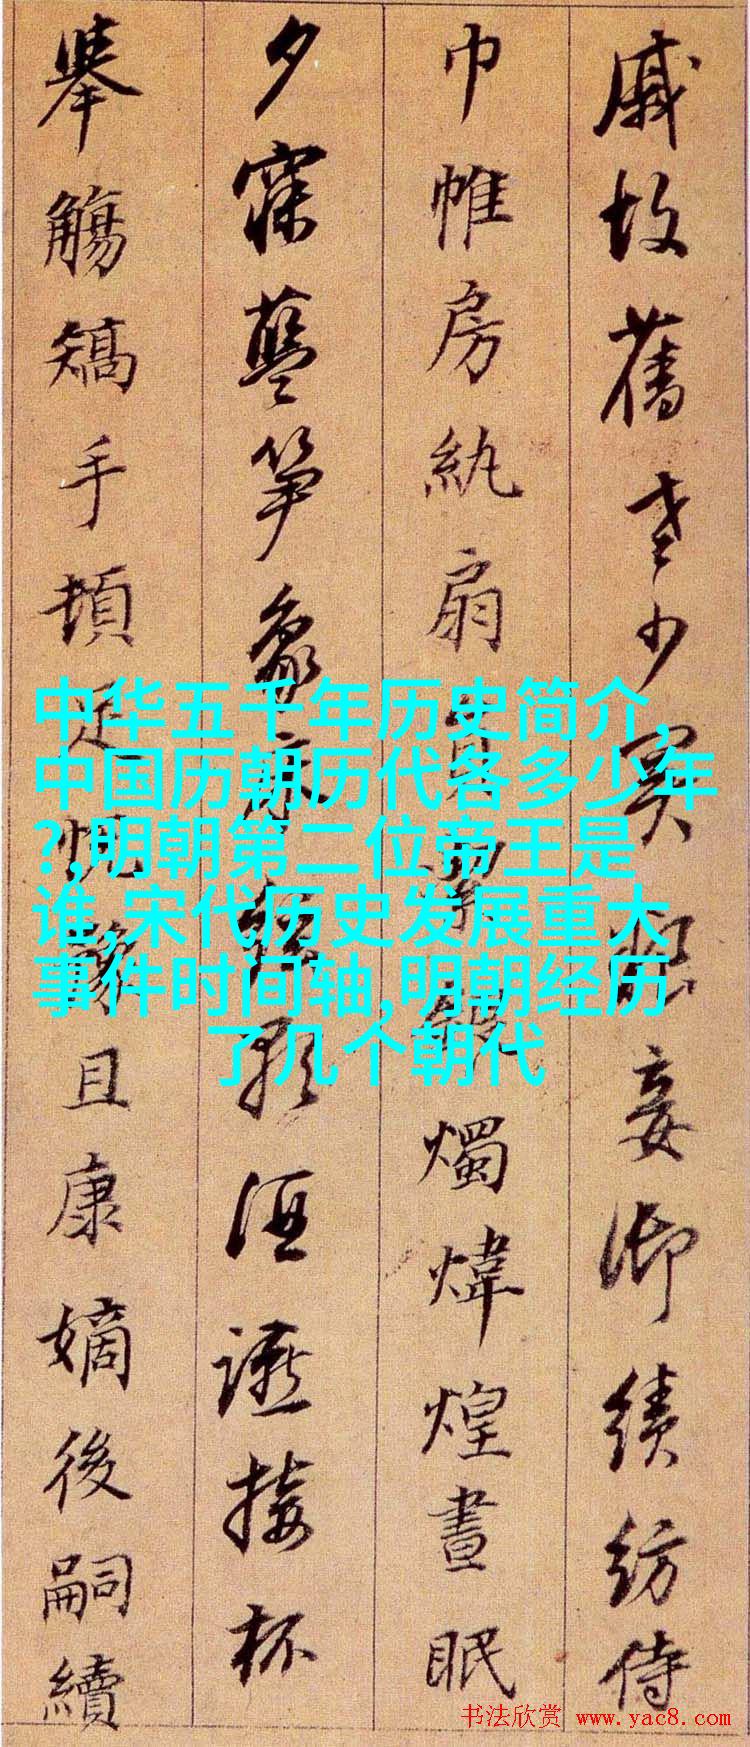 戚故舊老少異粮妾御績紡侍
巾帷房紈扇員潔銀燭煒煌晝眠
夕寐藍笋象床弦歌酒讌接杯
舉觴矯手頓足悅豫且康嫡後嗣續
中华五千年历史简介,
中国历朝历代各多少年
?,明朝第二位帝王是
谁,宋代历史发展重大
事件时间轴,明朝经历
了几个朝代
书法欣赏 www.yac8.com